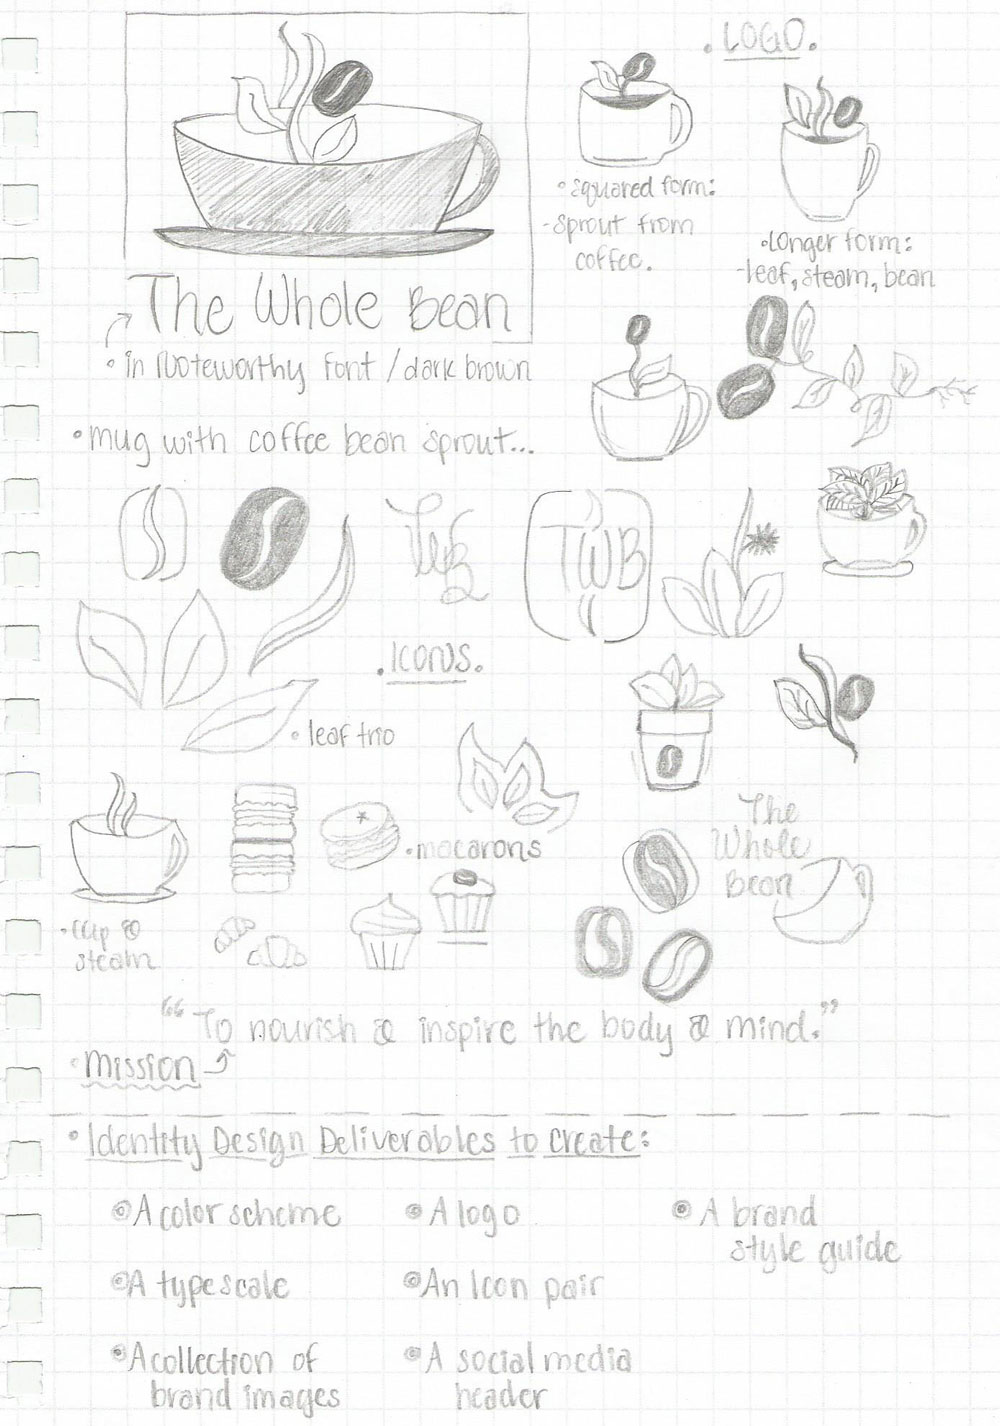 . LOGO.
• squared form:
- sprout from
coffee.
• Longer form:
- leaf, steam, bean
The Whole Bean
• in Noteworthy font / dark brown
• mug with coffee bean sprout...
TWB
TWB
. Icons.
• leaf trio
• macarons
The
Whole
Bean
• cup &
steam
“To nourish & inspire the body & mind.”
• Mission
• Identity Design Deliverables to create:
A color scheme
A logo
A brand
style guide
A typescale
An Icon pair
A collection of
brand images
A social media
header